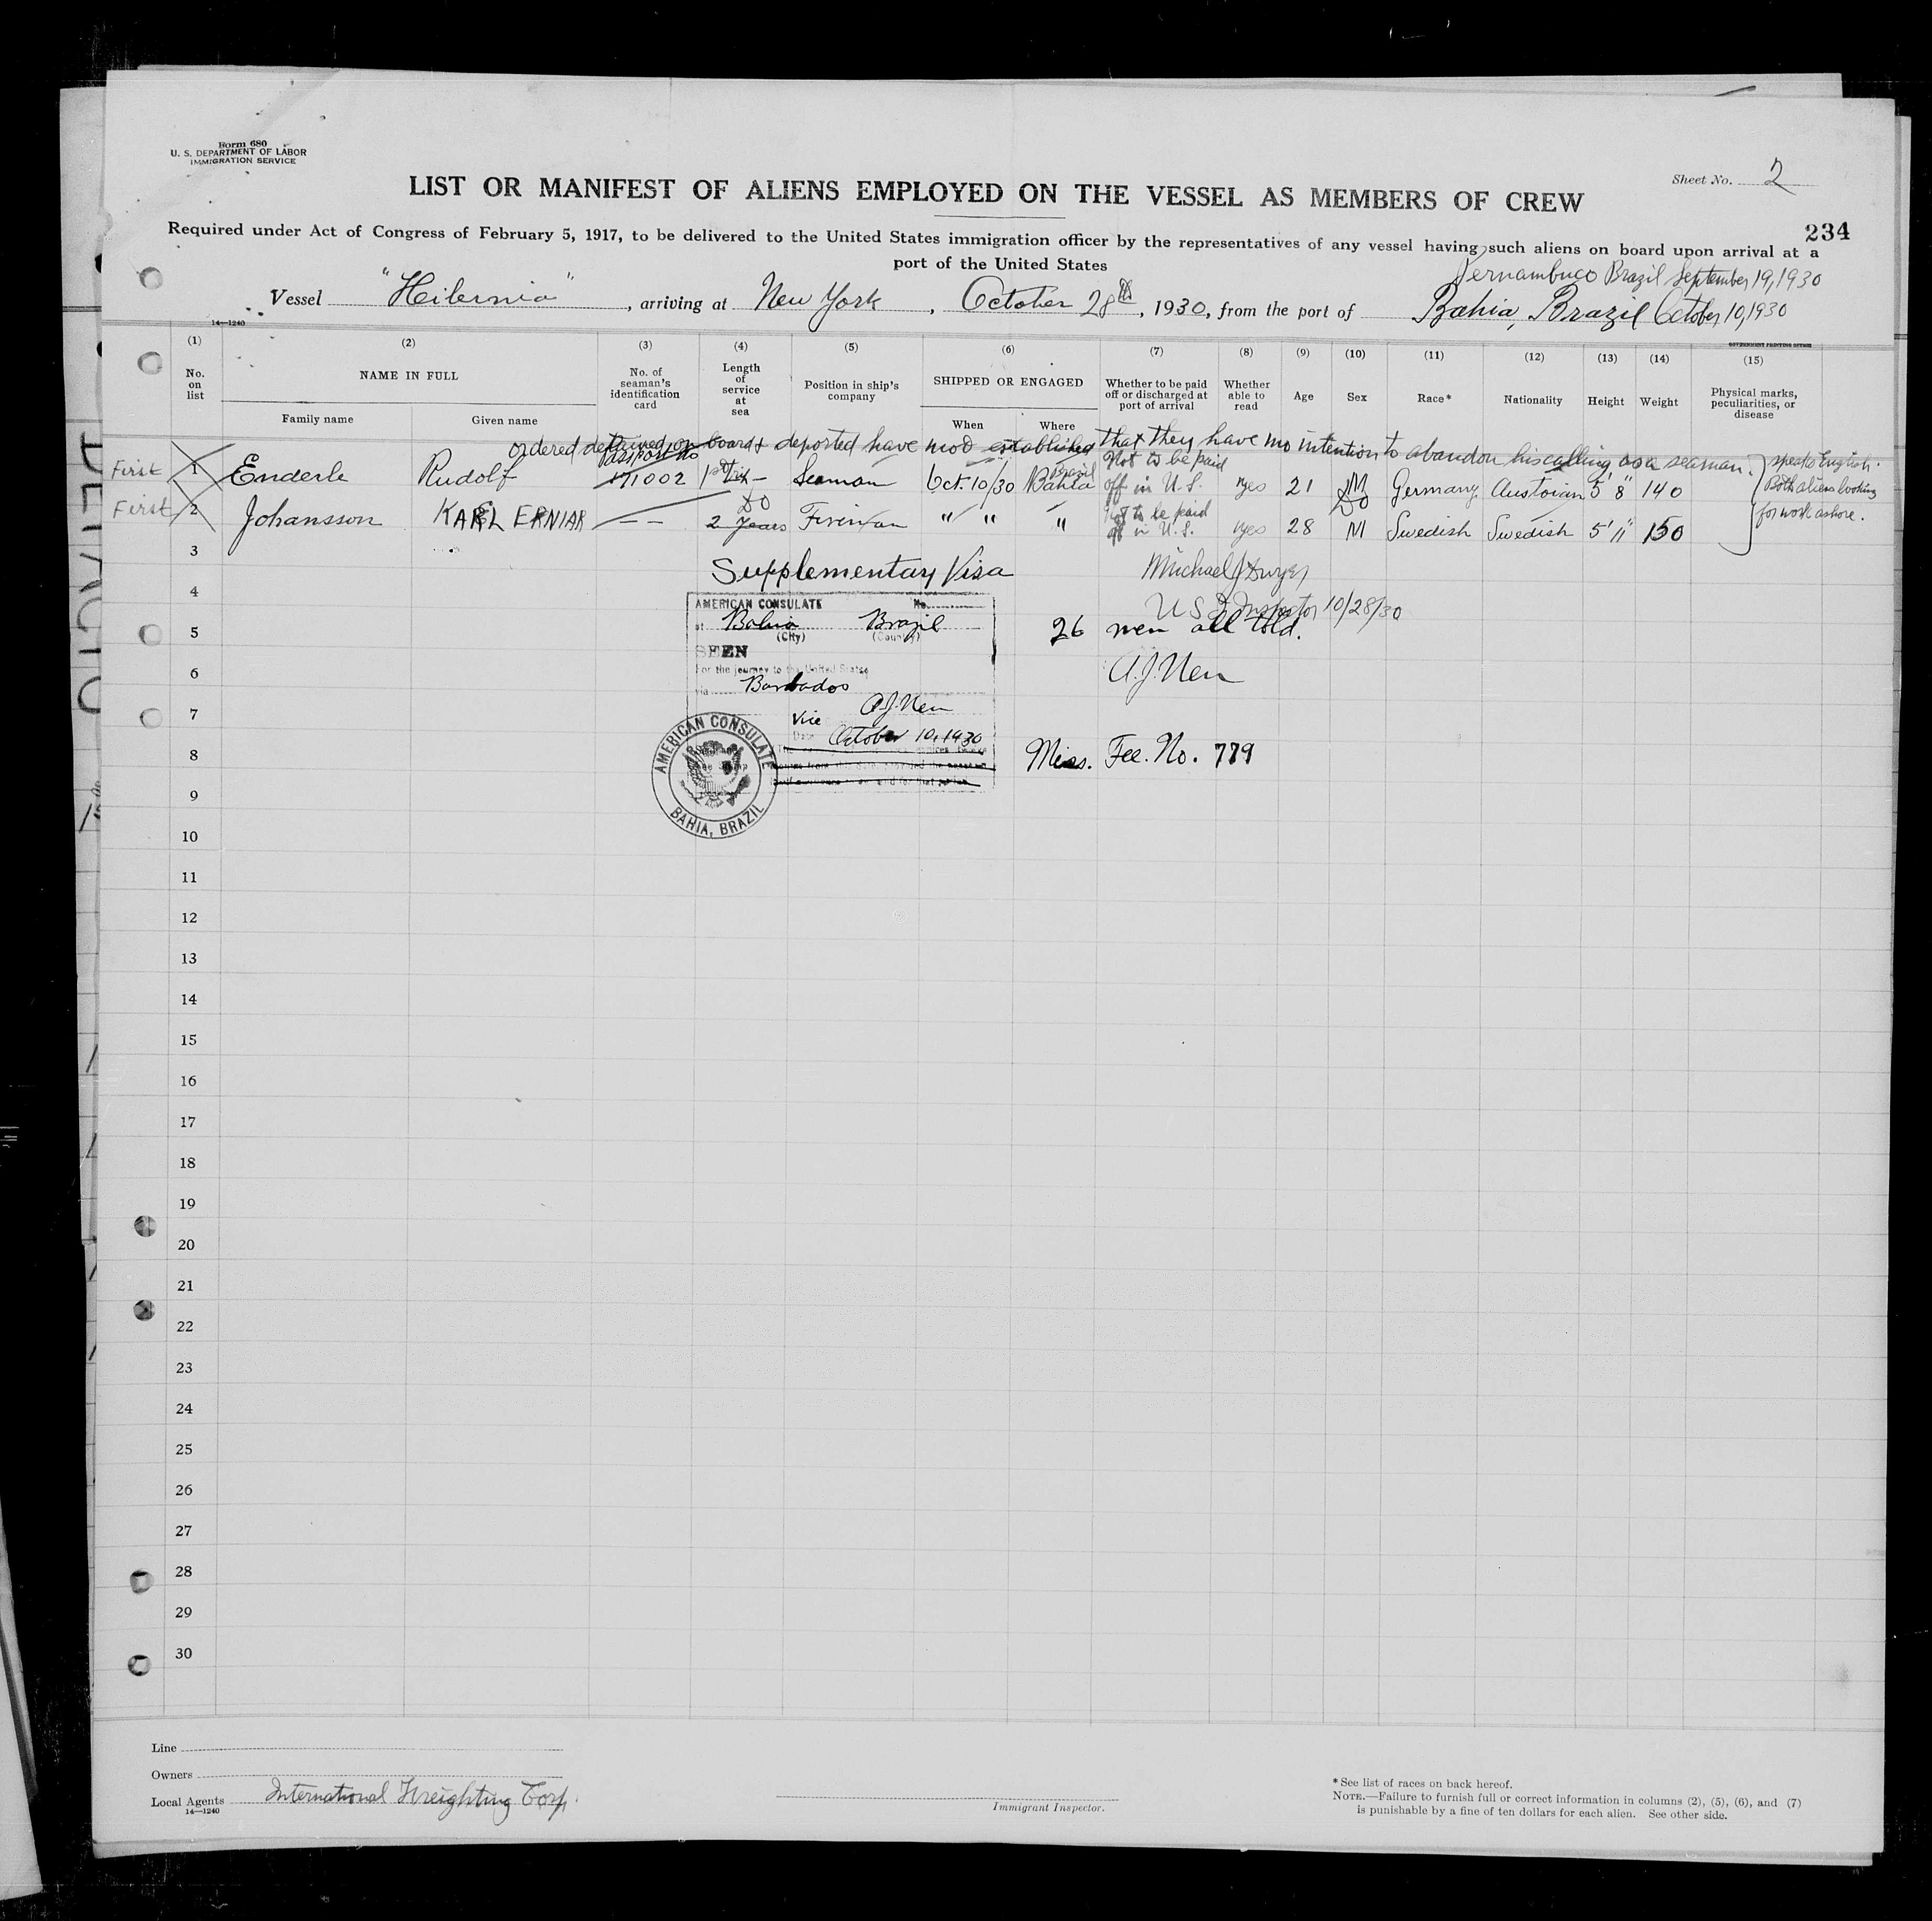 Form 680
U. S. DEPARTMENT OF LABOR
IMMIGRATION SERVICE
Sheet No. 2
LIST OR MANIFEST OF ALIENS EMPLOYED ON THE VESSEL AS MEMBERS OF CREW
234
Required under Act of Congress of February 5, 1917, to be delivered to the United States immigration officer by the representatives of any vessel having such aliens on board upon arrival at a
port of the United States
Pernambuco Brazil September 19, 1930
Vessel "Heilernia", arriving at New York, October 28th, 1930, from the port of Bahia, Brazil October 10, 1930
14—1240
GOVERNMENT PRINTING OFFICE
(1) (2) (3) (4) (5) (6) (7) (8) (9) (10) (11) (12) (13) (14) (15)
No. on list
NAME IN FULL
Family name
Given name
No. of seaman's identification card
Length of service at sea
Position in ship's company
SHIPPED OR ENGAGED
When
Where
Whether to be paid off or discharged at port of arrival
Whether able to read
Age
Sex
Race*
Nationality
Height
Weight
Physical marks, peculiarities, or disease
ordered detained on board & deported have not established that they have no intention to abandon his calling as a seaman.
Passport No
First 1 Enderle Rudolf 171002 1st Trip Seaman Oct. 10/30 Bahia Brazil Not to be paid off in U.S. yes 21 M German Austrian 5' 8" 140
speaks English.
Both aliens looking
for work ashore.
Do Do
First 2 Johansson KARL ERNIAR — — 2 Years Fireman " " " Not to be paid off in U.S. yes 28 M Swedish Swedish 5' 11" 150
3
Supplementary Visa
Michael J Dwyer
4
U S I Inspector 10/28/30
AMERICAN CONSULATE No.
5
at Bahia Brazil
(City) (Country)
26 men all told.
SEEN
For the journey to the United States
6
via Barbados
A.J.
7
Vice
Date October 10, 1930
AMERICAN CONSULATE
BAHIA, BRAZIL
8
Miss. Fee. No. 779
9
10
11
12
13
14
15
16
17
18
19
20
21
22
23
24
25
26
27
28
29
30
Line
Owners
Local Agents International Freighting Corp.
14—1240
Immigrant Inspector.
* See list of races on back hereof.
NOTE.—Failure to furnish full or correct information in columns (2), (5), (6), and (7)
is punishable by a fine of ten dollars for each alien. See other side.